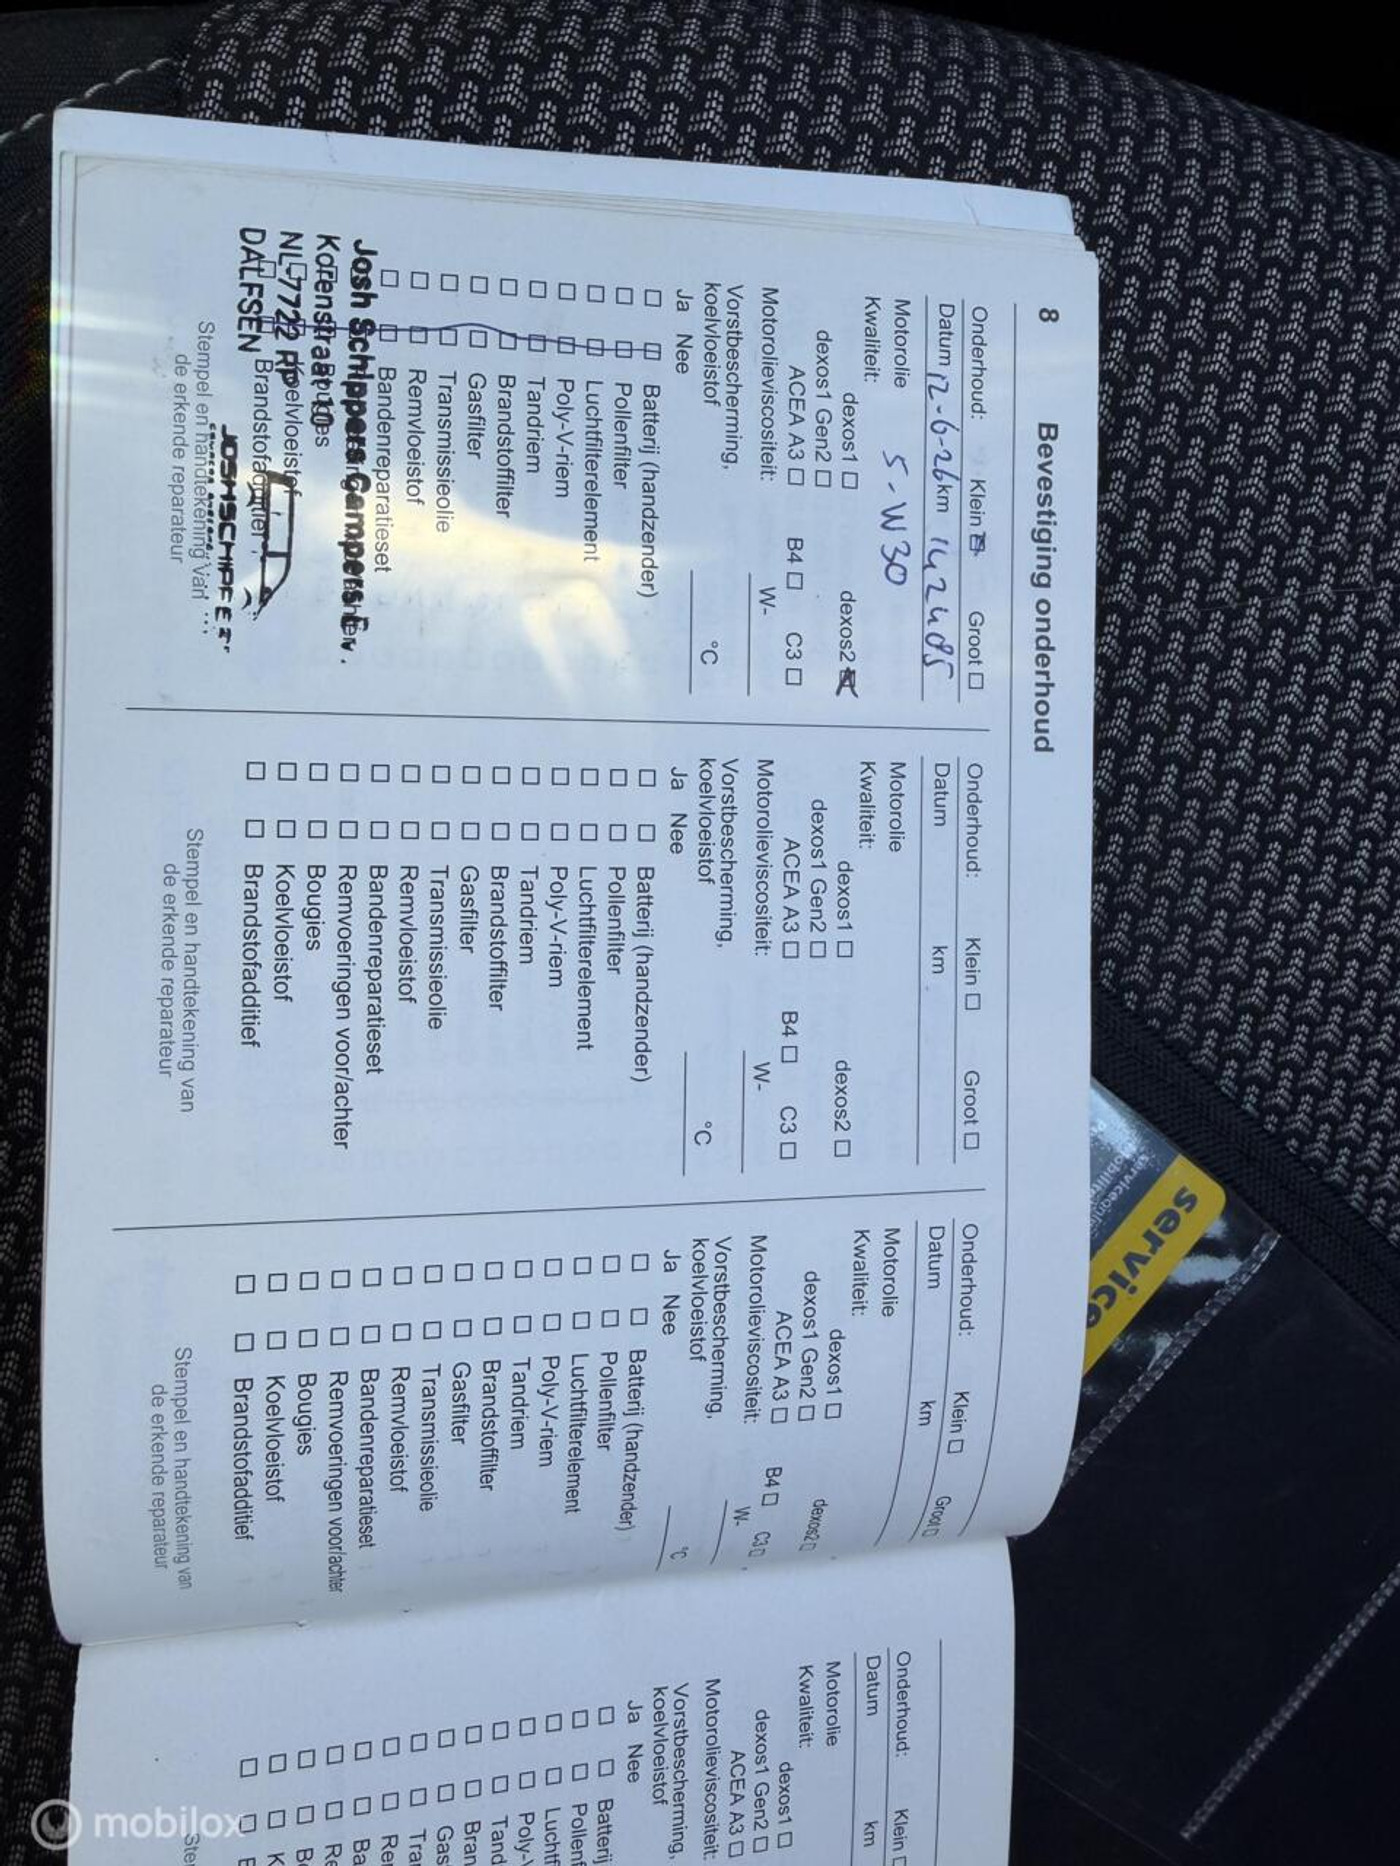 8 Bevestiging onderhoud
Onderhoud: Klein Groot
Datum 12-6-26 km 142485
Motorolie 5-W30
Kwaliteit:
dexos1 dexos2
dexos1 Gen2
ACEA A3 B4 C3
Motorolieviscositeit: W-
Vorstbescherming,
koelvloeistof °C
Ja Nee
Batterij (handzender)
Pollenfilter
Luchtfilterelement
Poly-V-riem
Tandriem
Brandstoffilter
Gasfilter
Transmissieolie
Remvloeistof
Bandenreparatieset
Josh Schippers Campers
Korenstraat 10
NL-7722 RP
Koelvloeistof
DALFSEN Brandstofadditief
Stempel en handtekening van
de erkende reparateur
Onderhoud: Klein Groot
Datum km
Motorolie
Kwaliteit:
dexos1 dexos2
dexos1 Gen2
ACEA A3 B4 C3
Motorolieviscositeit: W-
Vorstbescherming,
koelvloeistof °C
Ja Nee
Batterij (handzender)
Pollenfilter
Luchtfilterelement
Poly-V-riem
Tandriem
Brandstoffilter
Gasfilter
Transmissieolie
Remvloeistof
Bandenreparatieset
Remvoeringen voor/achter
Bougies
Koelvloeistof
Brandstofadditief
Stempel en handtekening van
de erkende reparateur
Onderhoud: Klein Groot
Datum km
Motorolie
Kwaliteit:
dexos1 dexos2
dexos1 Gen2
ACEA A3 B4 C3
Motorolieviscositeit: W-
Vorstbescherming,
koelvloeistof °C
Ja Nee
Batterij (handzender)
Pollenfilter
Luchtfilterelement
Poly-V-riem
Tandriem
Brandstoffilter
Gasfilter
Transmissieolie
Remvloeistof
Bandenreparatieset
Remvoeringen voor/achter
Bougies
Koelvloeistof
Brandstofadditief
Stempel en handtekening van
de erkende reparateur
Onderhoud: Klein
Datum km
Motorolie
Kwaliteit:
dexos1
dexos1 Gen2
ACEA A3
Motorolieviscositeit:
Vorstbescherming,
koelvloeistof
Ja Nee
Batterij
Pollenf
Luchtf
Poly-V
Tand
Bran
Gas
Tra
Re
Ba
Re
Bo
K
B
Ste
service
mobilox